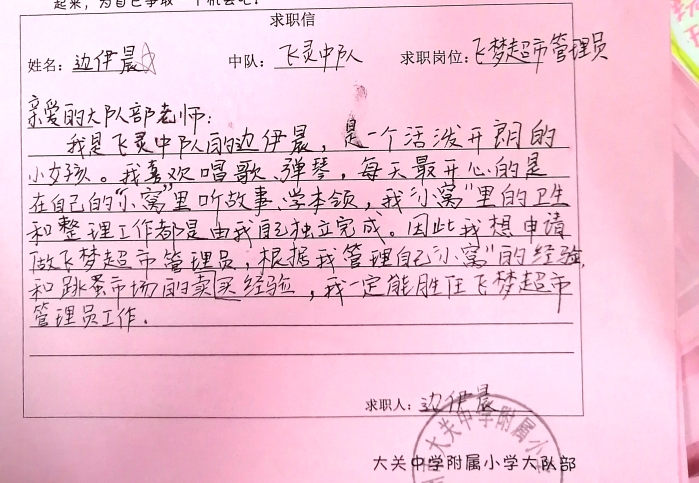 起来，为自己争取一个机会吧！
求职信
姓名：边伊晨 中队：飞灵中队 求职岗位：飞梦超市管理员
亲爱的大队部老师：
我是飞灵中队的边伊晨，是一个活泼开朗的
小女孩。我喜欢唱歌、弹琴，每天最开心的是
在自己的“小窝”里听故事、学本领，我“小窝”里的卫生
和整理工作都是由我自己独立完成。因此我想申请
做飞梦超市管理员，根据我管理自己“小窝”的经验
和跳蚤市场的卖买经验，我一定能胜任飞梦超市
管理员工作.
求职人：边伊晨
大关中学附属小
大关中学附属小学大队部